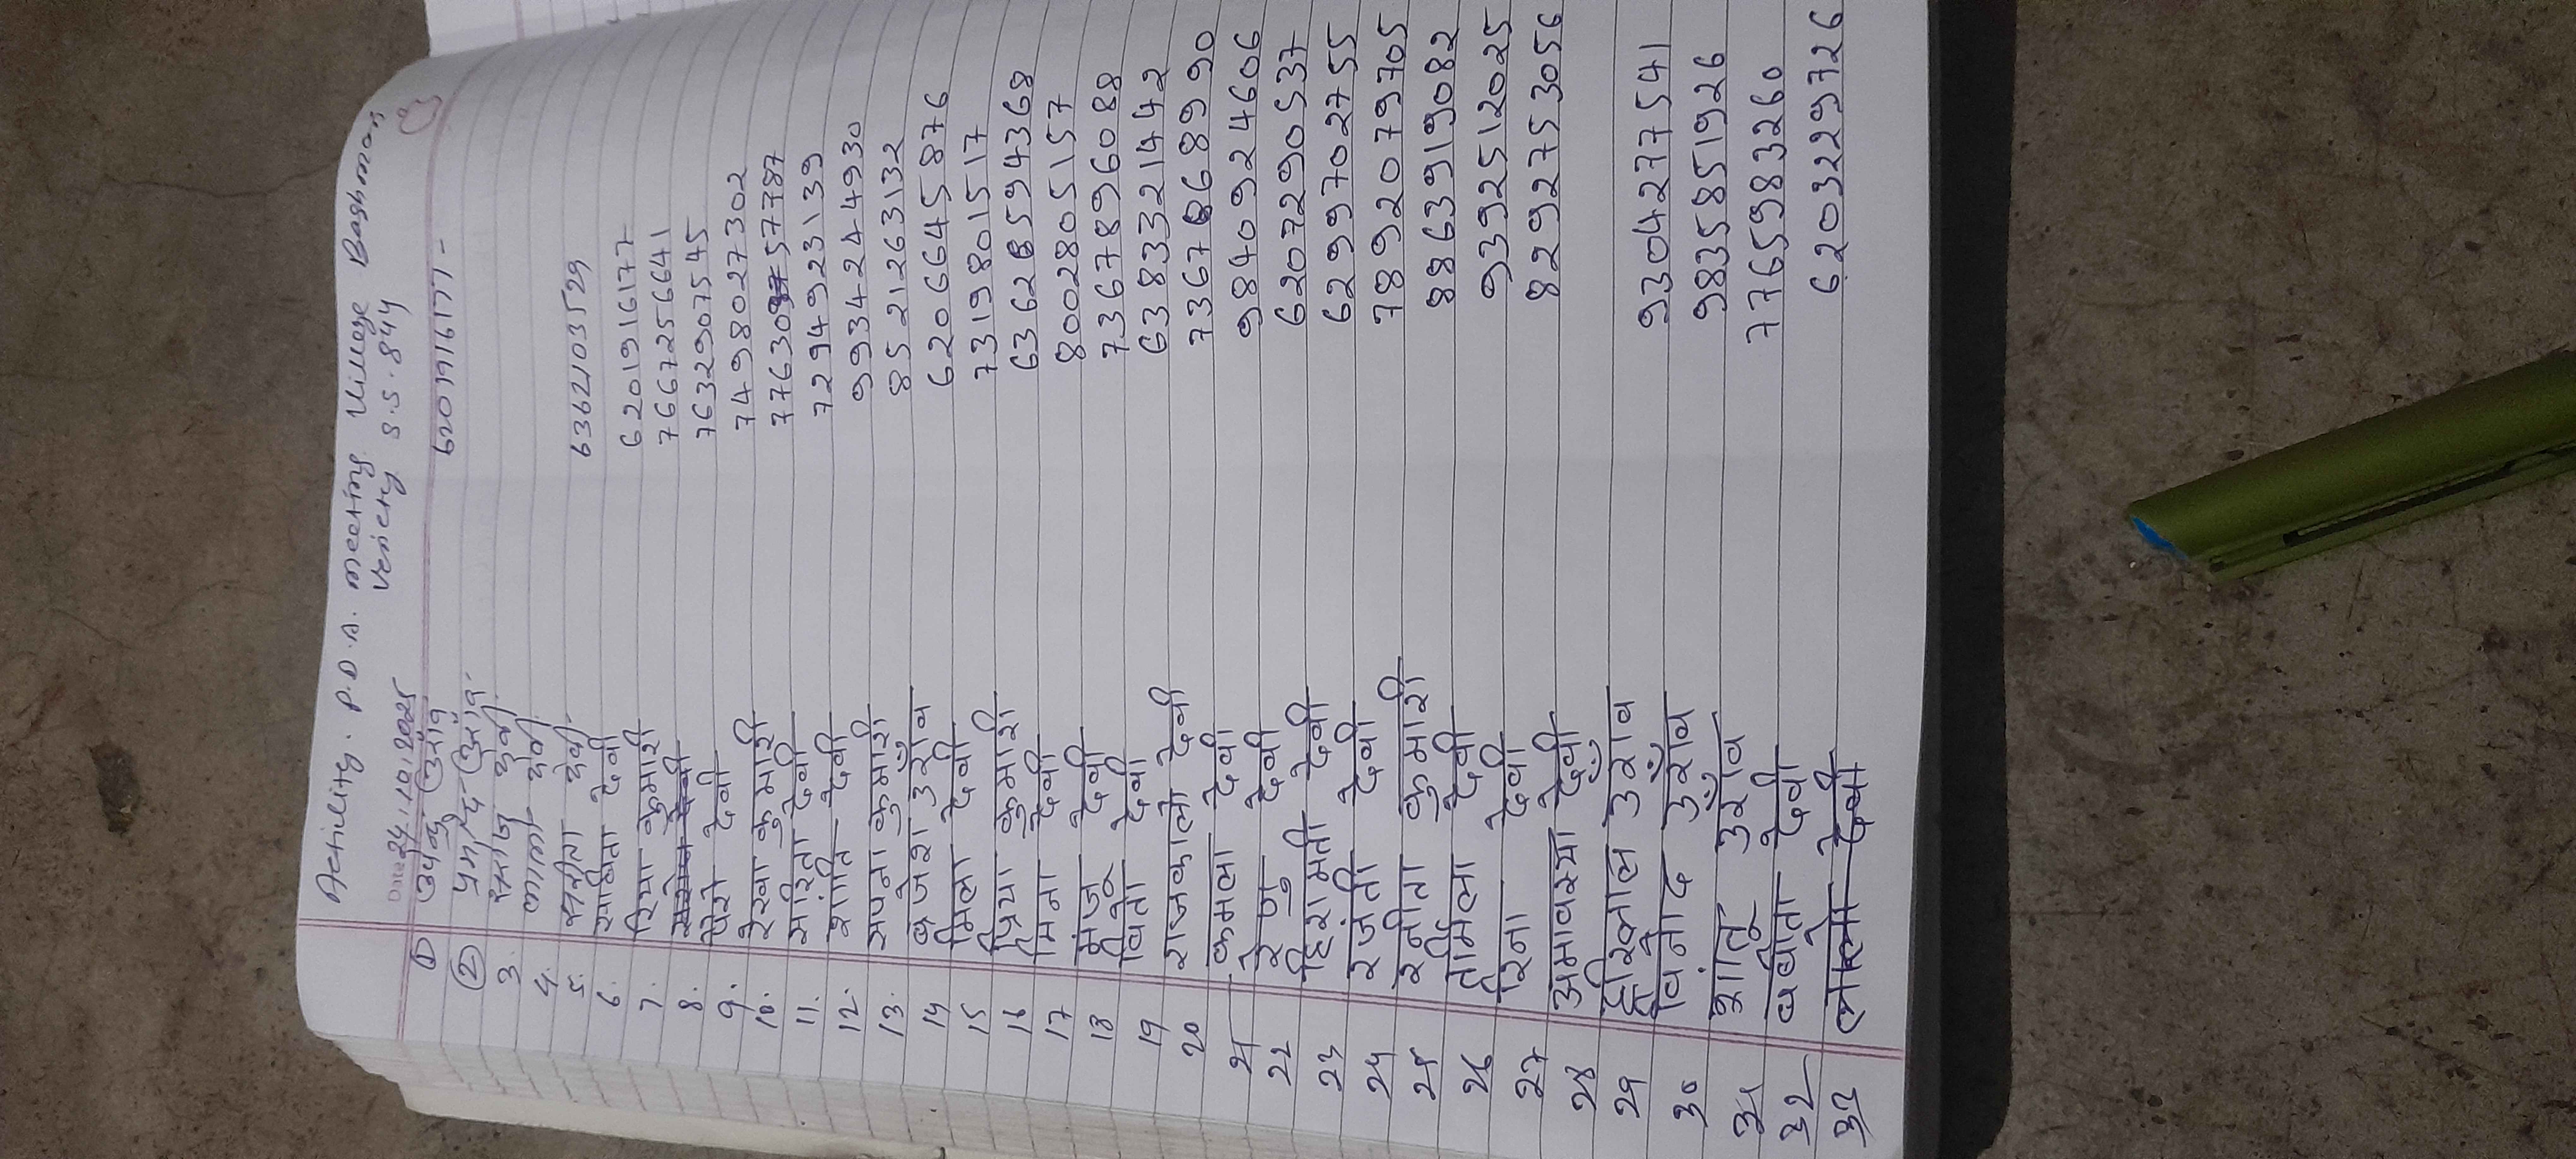 Activity. P.D.A. meeting Village Baghman
Veriety S.S. 844
Date 24.10.2025
① 6201916177 -
② प्रमोद
3.
4. देवी
5. सबीता देवी 6362103529
6. सबिता देवी
7. रिया कुमारी 6201916177
8. देवी 7667256641
9. देवी 7632907545
10. रेखा कुमारी 7498027302
11. सरिता देवी
12. शांति देवी 7294923139
13. सपना कुमारी 9934244930
14 ब्रजेश उराँव 8521263132
15 मिला देवी 6206645876
16 प्रिया कुमारी 7319801517
17 मिना देवी 63628594368
18 मंजू देवी 8002805157
19 विता देवी 7367896088
20 राजकली देवी 6383321442
21 कमला देवी 7367868990
22 रेणु देवी 9840924606
23 हिरामती देवी 6207290537
24 रजंती देवी 6299702755
25 रनीता कुमारी 7892079705
26 र्तामिला देवी 8863919082
27 रिना देवी 9392512025
28 अमावस्या देवी 8292753056
29 हीरालाल उराँव
30 विनोद उराँव 9304277541
31 शांतू उराँव 9835851926
32 बबीता देवी 7765983260
33 देवी 6203229726